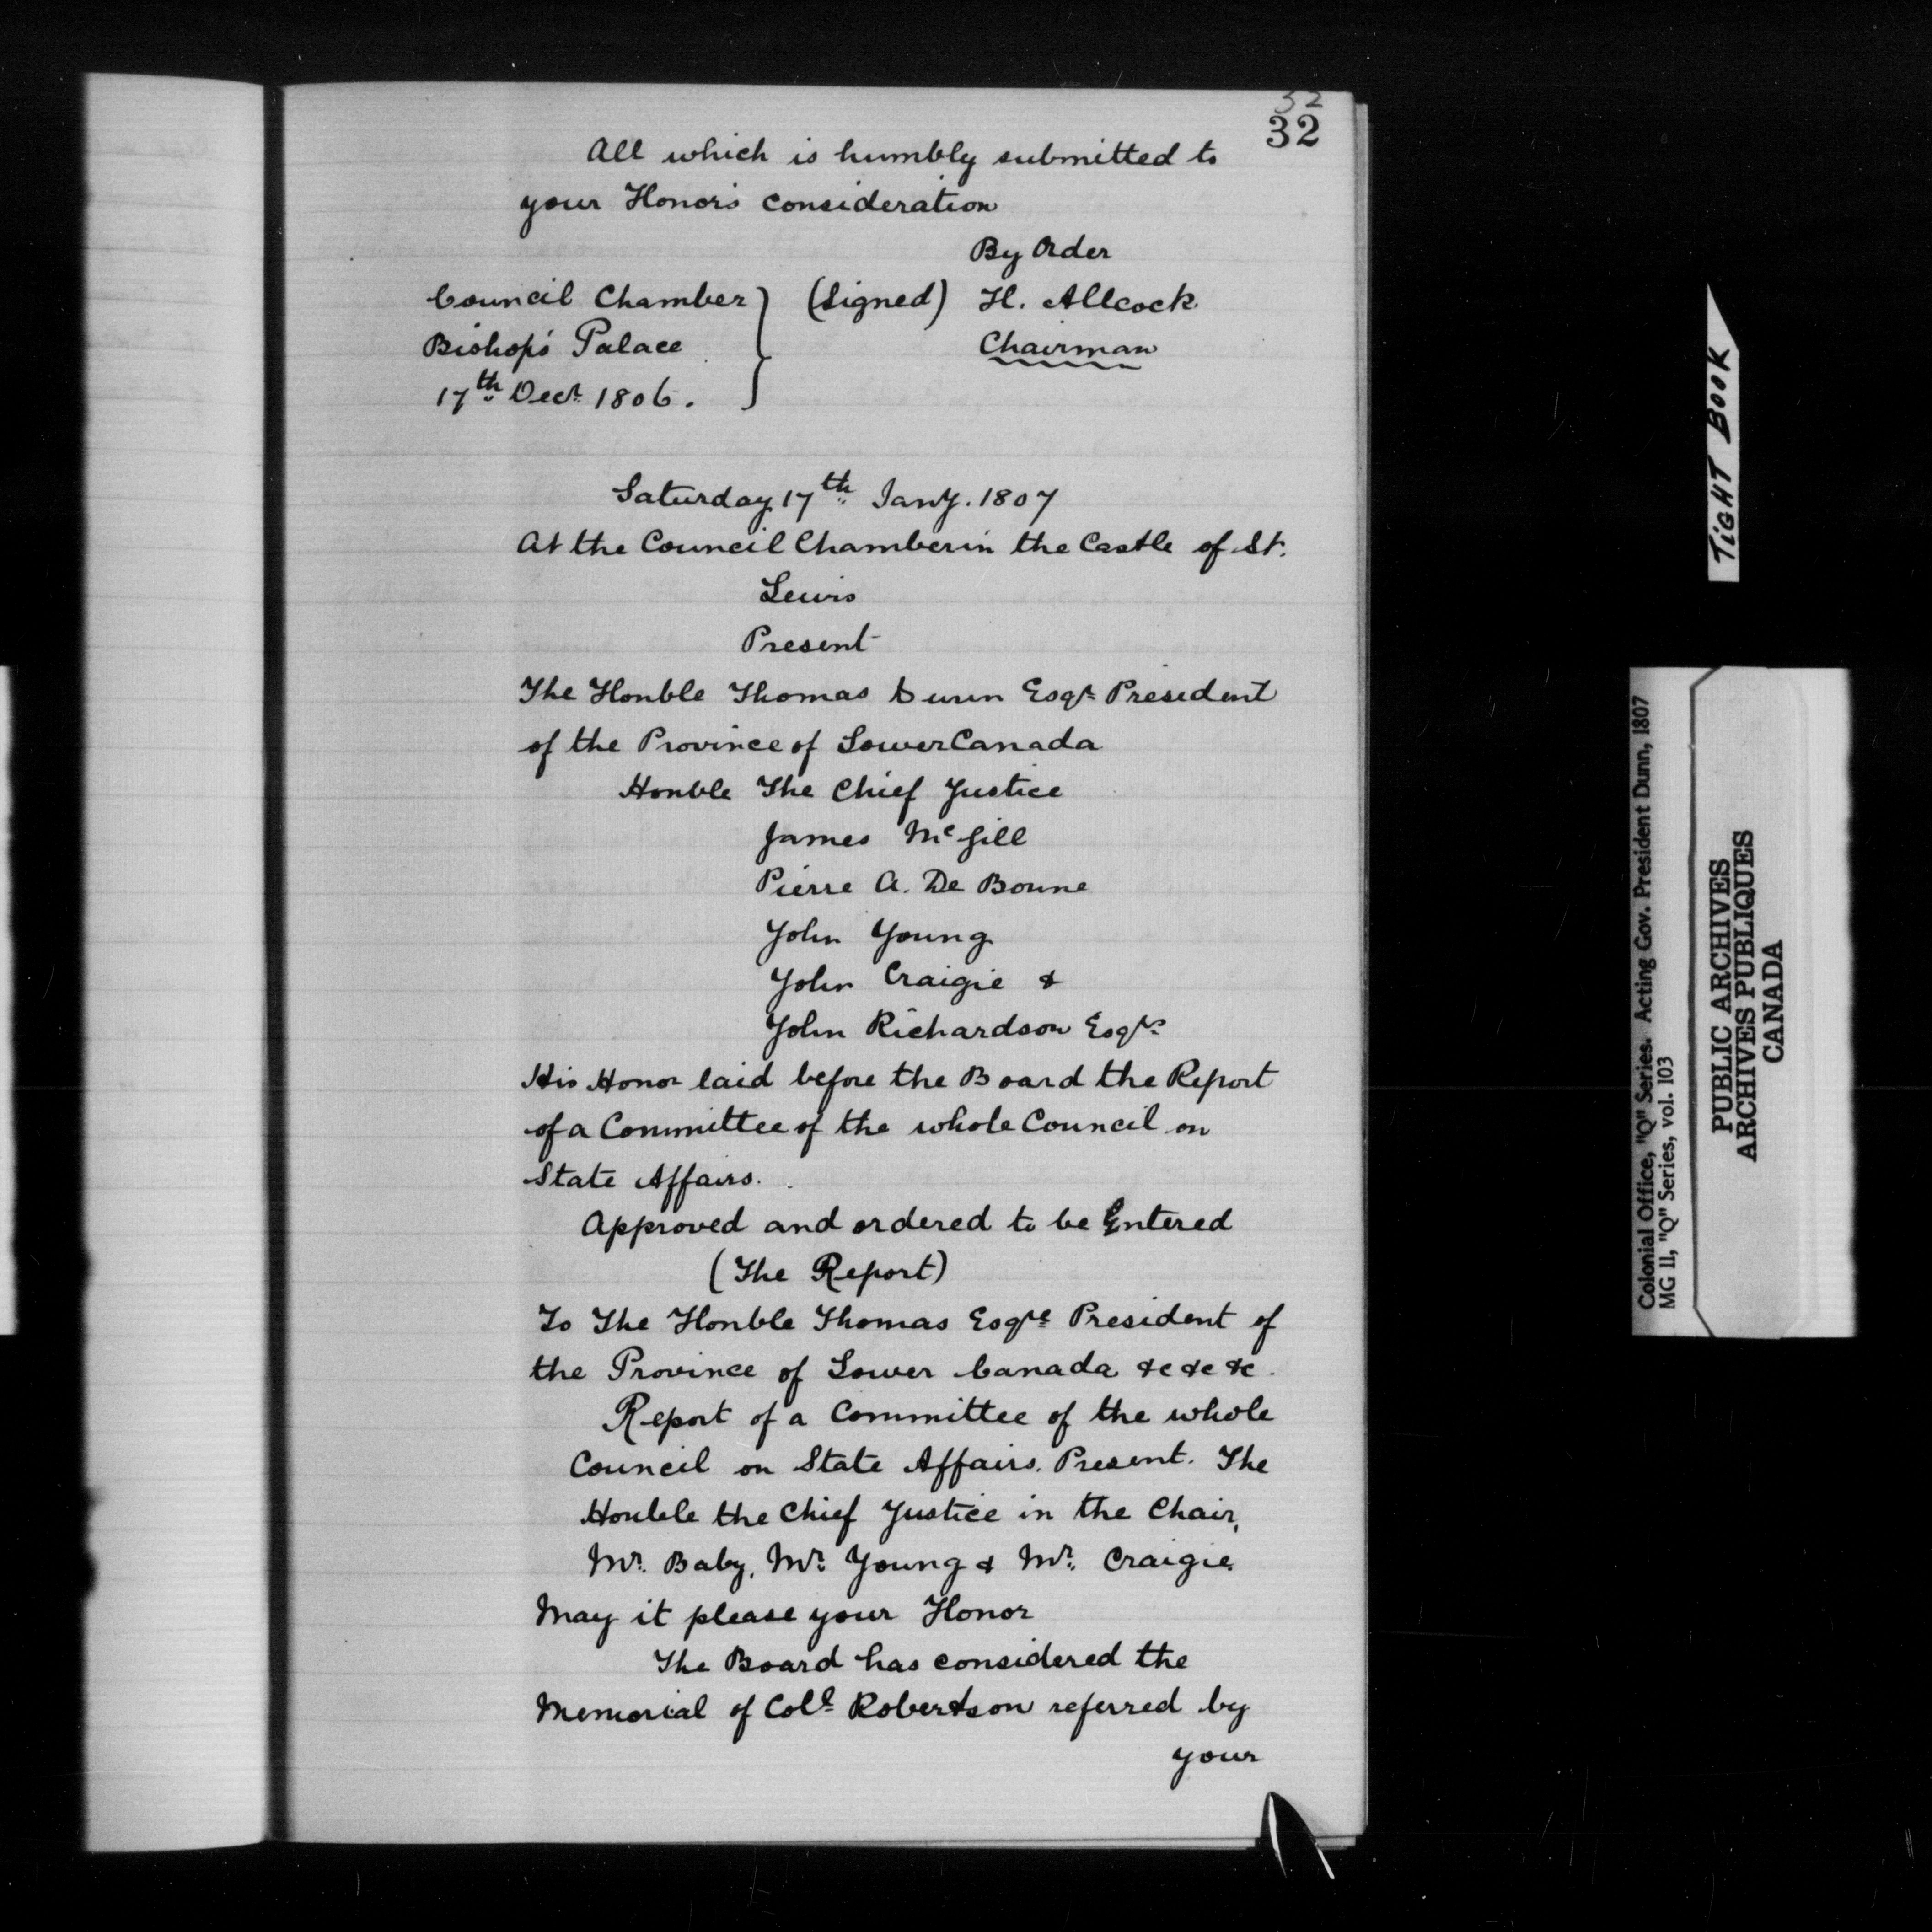 32
32
All which is humbly submitted to
your Honor's consideration
By Order
Council Chamber } (Signed) H. Allcock
Bishop's Palace Chairman
17th Decr. 1806.
Saturday 17th Jany. 1807
At the Council Chamber in the Castle of St.
Lewis
Present
The Honble Thomas Dunn Esqr. President
of the Province of Lower Canada
Honble The Chief Justice
James McGill
Pierre A. De Bonne
John Young
John Craigie &
John Richardson Esqrs.
His Honor laid before the Board the Report
of a Committee of the whole Council on
State Affairs.
Approved and ordered to be Entered
(The Report)
To The Honble Thomas Esqre. President of
the Province of Lower Canada &c &c &c.
Report of a Committee of the whole
Council on State Affairs. Present. The
Honble the Chief Justice in the Chair,
Mr. Baby, Mr. Young & Mr. Craigie.
May it please your Honor
The Board has considered the
Memorial of Coll. Robertson referred by
your
TIGHT BOOK
Colonial Office, "Q" Series. Acting Gov. President Dunn, 1807
MG 11, "Q" Series, vol. 103
PUBLIC ARCHIVES
ARCHIVES PUBLIQUES
CANADA